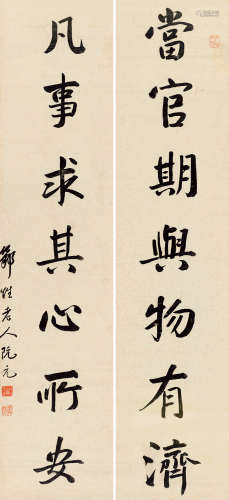 當官期與物有濟
凡事求其心所安
節性老人阮元